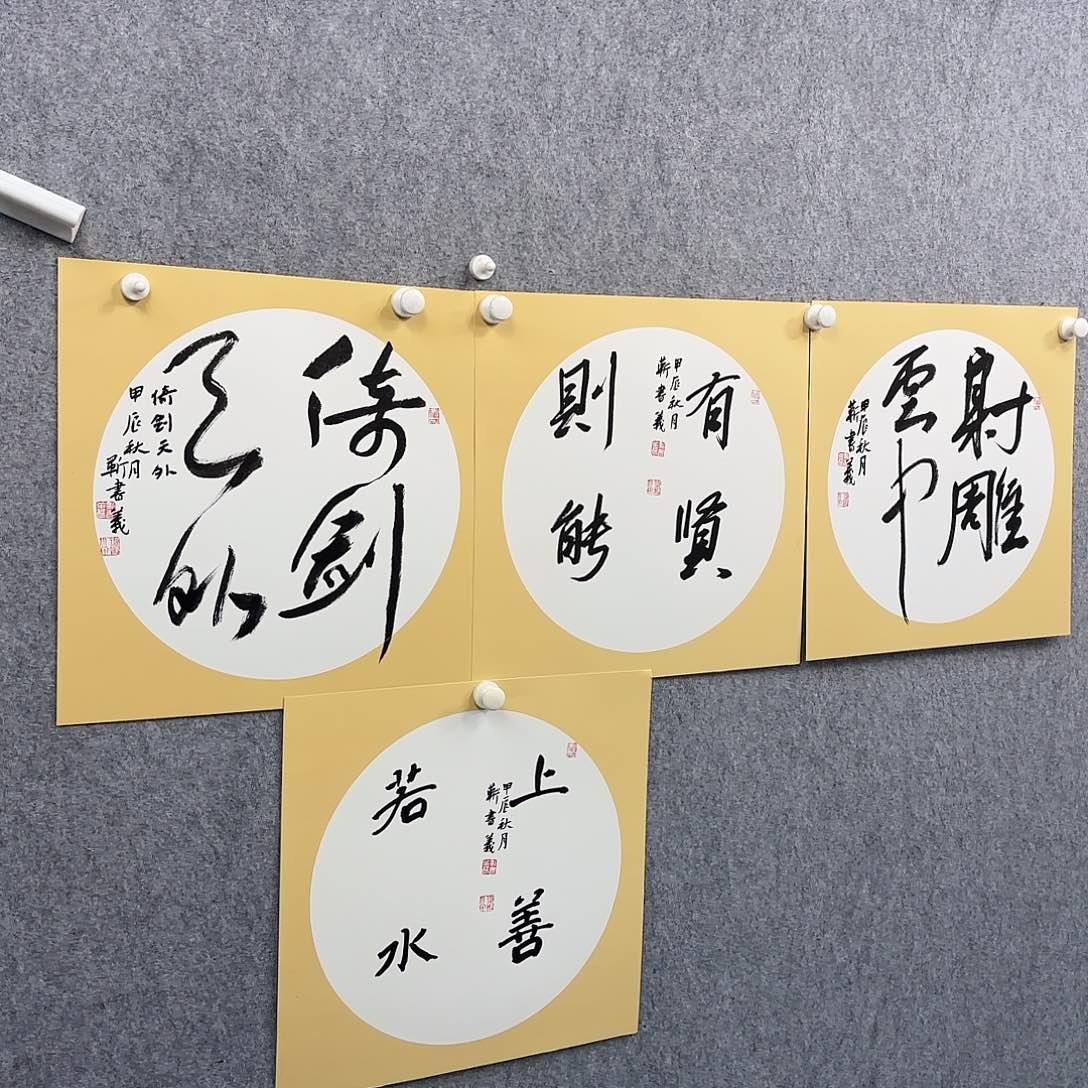 倚剑
天外
倚剑天外
甲辰秋月
靳书義
有賢
則能
甲辰秋月
靳书義
射雕
雲中
甲辰秋月
靳书義
上善
若水
甲辰秋月
靳書義